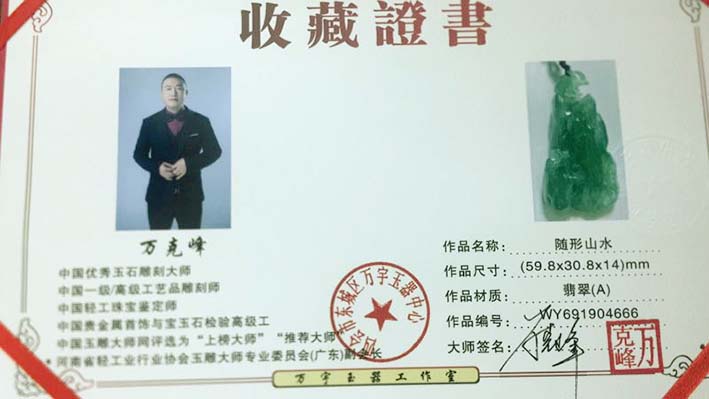 收藏證書
万克峰
中国优秀玉石雕刻大师
中国一级/高级工艺品雕刻师
中国轻工珠宝鉴定师
中国贵金属首饰与宝玉石检验高级工
中国玉雕大师网评选为“上榜大师”“推荐大师”
河南省轻工业行业协会玉雕大师专业委员会(广东)副会长
会市东城区万宇玉器中心
作品名称: 随形山水
作品尺寸: (59.8x30.8x14)mm
作品材质: 翡翠(A)
作品编号: WY691904666
大师签名:
万克峰
万宇玉器工作室